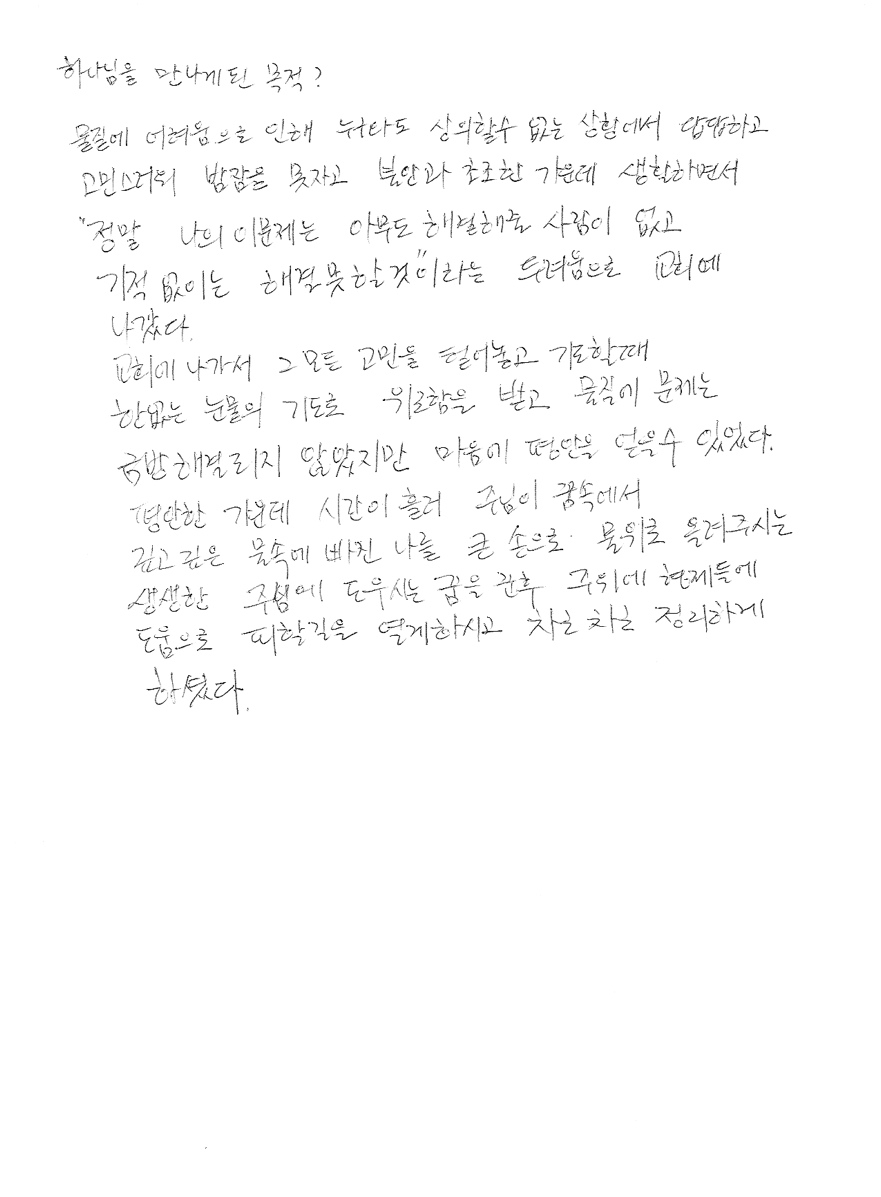 하나님을 만나게된 목적?
물질에 어려움으로 인해 누타도 상의할수 없는 상황에서 답답하고
고민스러워 밤잠을 못자고 불안과 초조한 가운데 생활하면서
"정말 나의 이문제는 아무도 해결해줄 사람이 없고
기적 없이는 해결못할것"이라는 두려움으로 교회에
나갔다.
교회에 나가서 그 모든 고민을 털어놓고 기도할때
한없는 눈물의 기도로 위로함을 받고 물질에 문제는
금방해결되지 않았지만 마음에 평안을 얻을수 있었다.
평안한 가운데 시간이 흘러 주님이 꿈속에서
깊고 깊은 물속에 빠진 나를 큰 손으로 물위로 올려주시는
생생한 주님에 도우시는 꿈을 꾼후 주위에 형제들에
도움으로 피할길을 열게하시고 차츰 차츰 정리하게
하셨다.